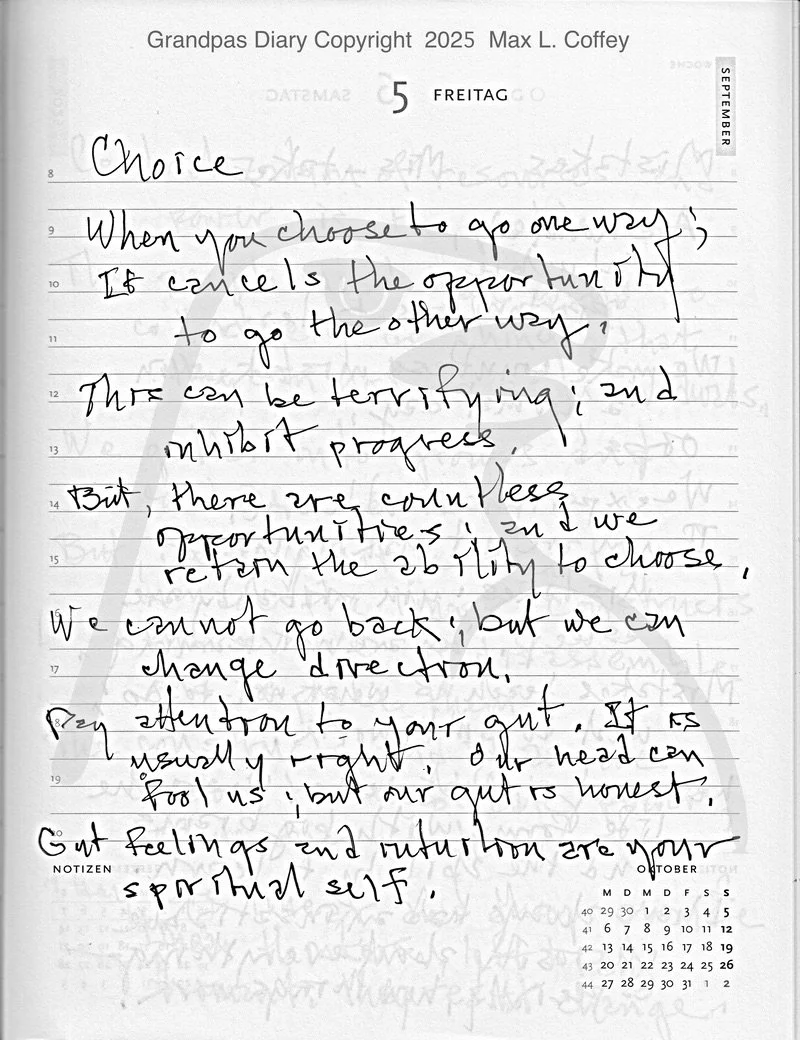 Grandpas Diary Copyright 2025 Max L. Coffey
5 FREITAG
SEPTEMBER
Choice
When you choose to go one way;
It cancels the opportunity
to go the other way.
This can be terrifying; and
inhibit progress.
But, there are countless
opportunities; and we
retain the ability to choose.
We cannot go back; but we can
change direction.
Pay attention to your gut. It is
usually right. Our head can
fool us; but our gut is honest.
Gut feelings and intuition are your
spiritual self.
8
9
10
11
12
13
14
15
16
17
18
19
20
NOTIZEN
OKTOBER
M D M D F S S
40 29 30 1 2 3 4 5
41 6 7 8 9 10 11 12
42 13 14 15 16 17 18 19
43 20 21 22 23 24 25 26
44 27 28 29 30 31 1 2